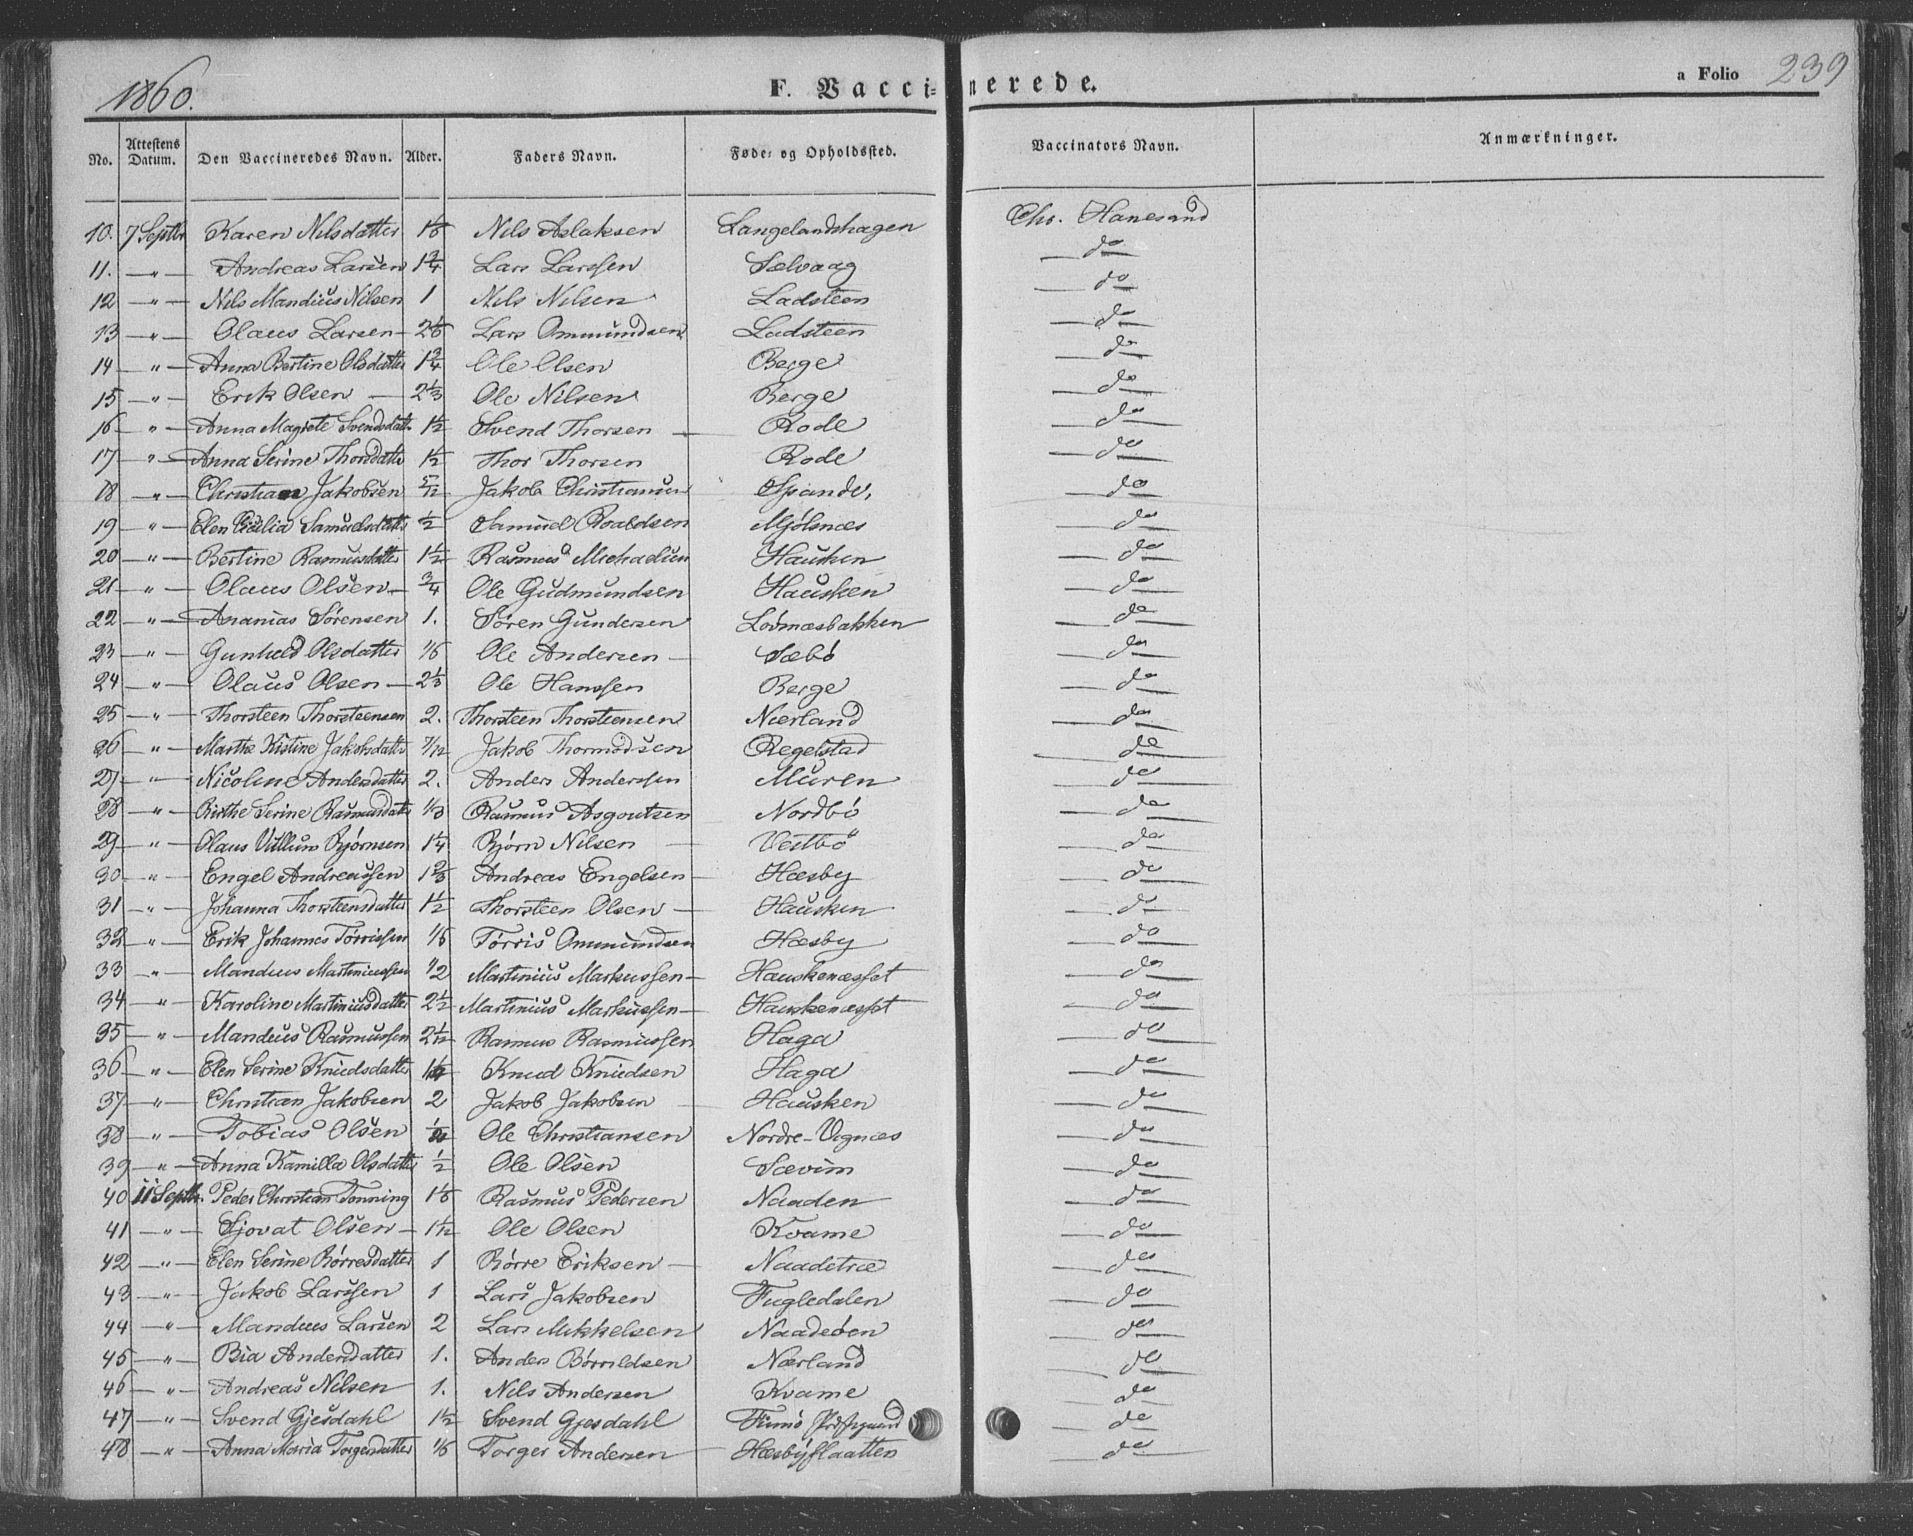 1860.
F. Vaccinerede.
a Folio 239
No. Attestens Datum. Den Vaccineredes Navn. Alder. Faders Navn. Føde- og Opholdssted. Vaccinators Navn. Anmærkninger.
10. 7 Septbr Karen Nilsdatter Nils Aslaksen Langelandshagen Chr. Hanesand
11. —"— Andreas Larsen 1 3/4 Lars Larssen Selvaag do
12 —"— Nils Mandius Nilsen 1 Nils Nilsen Ladsteen do
13 —"— Olaus Larsen Lars Ommundsen Ladsteen do
14 —"— Anna Bertine Olsdatter 1 3/4 Ole Olsen Berge do
15 —"— Erik Olsen 2 1/3 Ole Nilsen Berge do
16 —"— Anna Magrete Svendsdatt. 1 1/2 Svend Thorsen Rode do
17 —"— Anna Serine Thorsdatter 1 1/2 Thor Thorsen Rode do
18 —"— Christian Jakobsen 5/12 Jakob Christiansen Spande, do
19 —"— Elen Cicilia Samuelsdatter 1/2 Samuel Roaldsen Mjølsnæs do
20 —"— Bertine Rasmusdatter 1 1/2 Rasmus Michaelsen Hausken do
21 —"— Olaus Olsen 3/4 Ole Gudmundsen Hausken do
22 —"— Ananias Sørensen 1. Søren Gundersen Lodnæsbakken do
23 —"— Gunheld Olsdatter Ole Andersen Sæbø do
24 —"— Olaus Olsen 2 1/3 Ole Hanssen Berge do
25 —"— Thorsteen Thorsteensen 2. Thorsteen Thorsteensen Nærland do
26 —"— Marthe Kistine Jakobsdatter 7/12 Jakob Thormodsen Regelstad do
27 —"— Nicoline Andersdatter 2. Anders Anderssen Muren do
28 —"— Birthe Serine Rasmusdatt 1/3 Rasmus Asgoutsen Nordbø do
29 —"— Olaus Villum Bjørnsen 1 1/4 Bjørn Nilsen Vestbø do
30 —"— Engel Andreassen 1 2/3 Andreas Engelsen Hæsby do
31 —"— Johanna Thorsteensdatter 1 1/2 Thorsteen Olsen Hausken do
32 —"— Erik Johannes Tørrissen Tørris Ommundsen Hæsby do
33 —"— Mandius Martiniussen 1/2 Martinius Markussen Hauskenæsset do
34 —"— Karoline Martiniusdatter 2 1/2 Martinius Markussen Hauskenæsset do
35 —"— Mandius Rasmussen 2 1/12 Rasmus Rasmussen Haga do
36 —"— Elen Serine Knudsdatter Knud Knudsen Haga do
37 —"— Christian Jakobsen 2 Jakob Jakobsen Hausken do
38 —"— Tobias Olsen Ole Christiansen Nordre-Vignæs do
39 —"— Anna Kamilla Olsdatter 1/2 Ole Olsen Sævim do
40 11 Septbr. Peder Christian Tonning Rasmus Pedersen Naaden do
41 —"— Sjovat Olsen 1 1/12 Ole Olsen Kvame do
42 —"— Elen Serine Børresdatter 1 Børre Eriksen Naadetræ do
43 —"— Jakob Larssen 1 Lars Jakobsen Fugledalen do
44 —"— Mandius Larsen 2 Lars Mikkelsen Naadeøen do
45 —"— Bia Andersdatter 1. Anders Børrildsen Nærland do
46 —"— Andreas Nilsen 1. Nils Andersen Kvame do
47 —"— Svend Gjesdahl 1 1/2 Svend Gjesdahl Finnø Præstegaard do
48 —"— Anna Maria Torgersdatter Torger Andersen Hæsbyflaatten do